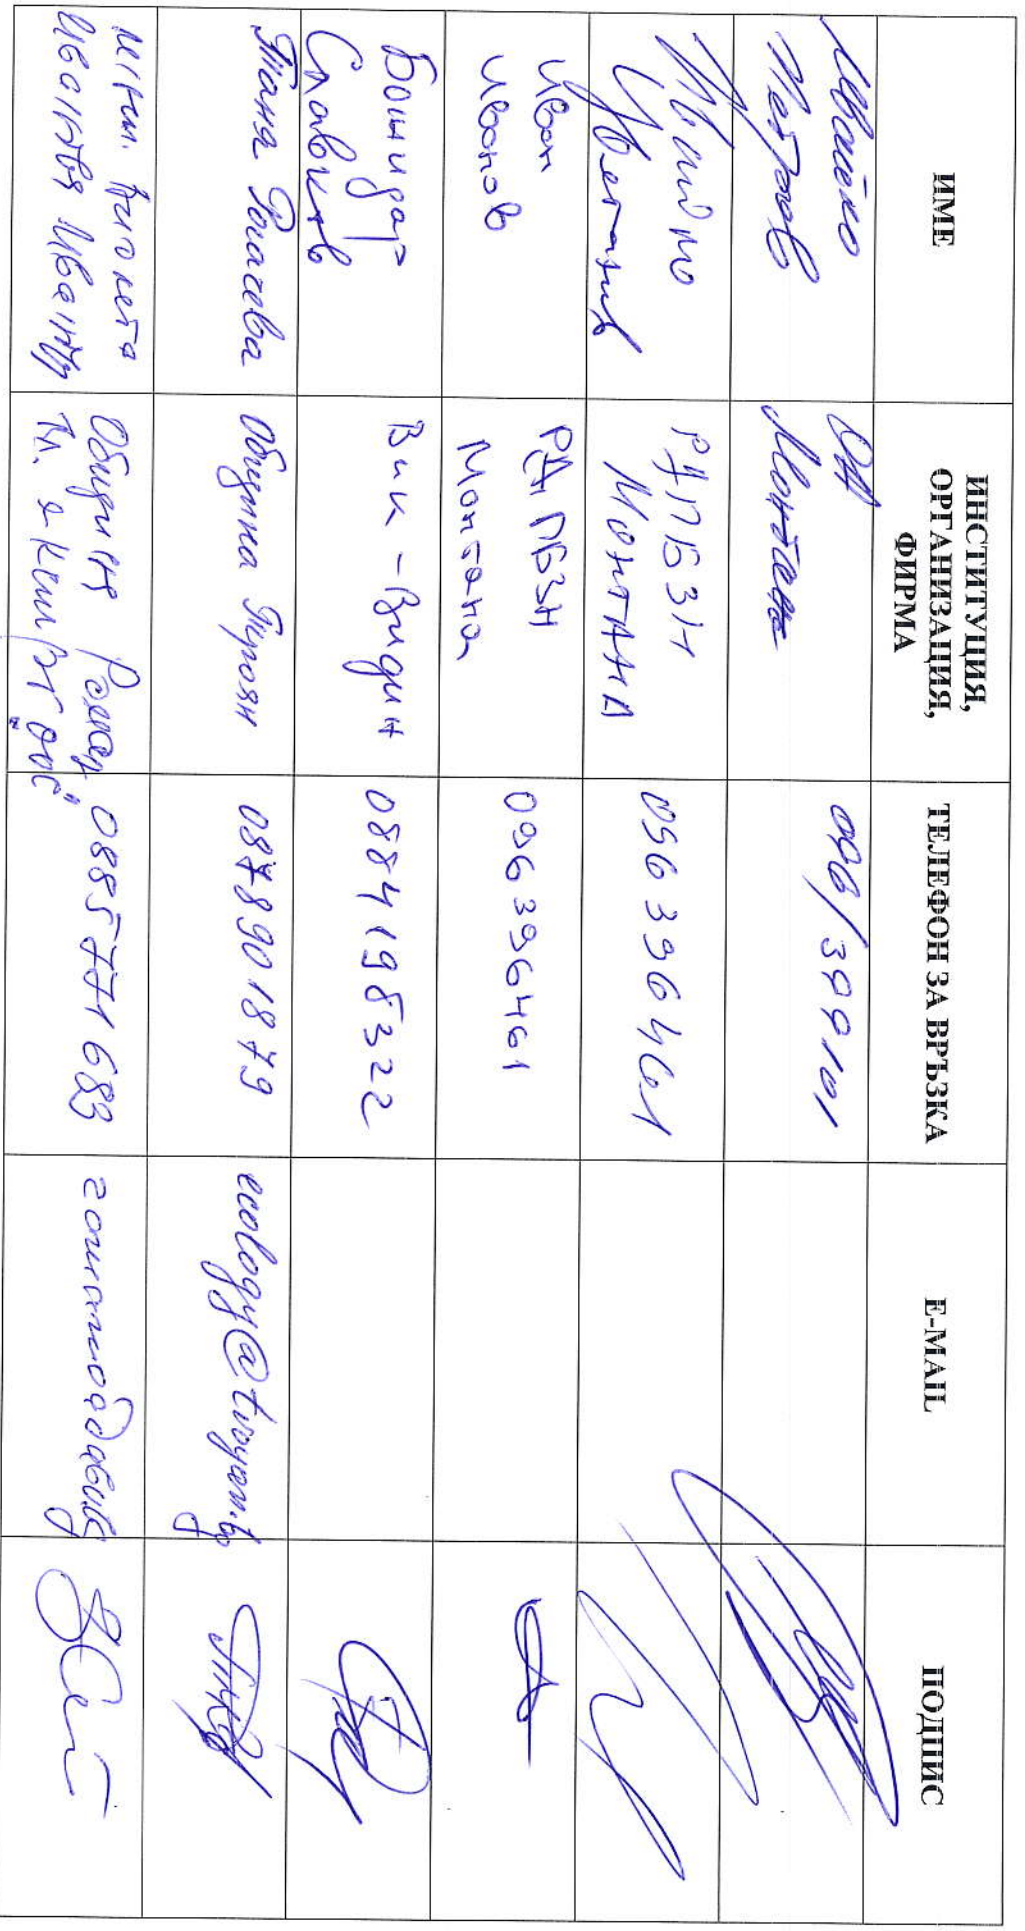 ИМЕ
ИНСТИТУЦИЯ,
ОРГАНИЗАЦИЯ,
ФИРМА
ТЕЛЕФОН ЗА ВРЪЗКА
E-MAIL
ПОДПИС
Ивайло
Петров
ОД
Монтана
096/399101
Цветанов
РДПБЗН
МОНТАНА
096396461
Иван
Иванов
РДПБЗН
Монтана
096396461
Божидар
Славчев
ВиК - Видин
0884198322
Таня
Община Троян
0878901879
ecology@troyan.bg
инж. Виолета
Иванова
Община
0885771683